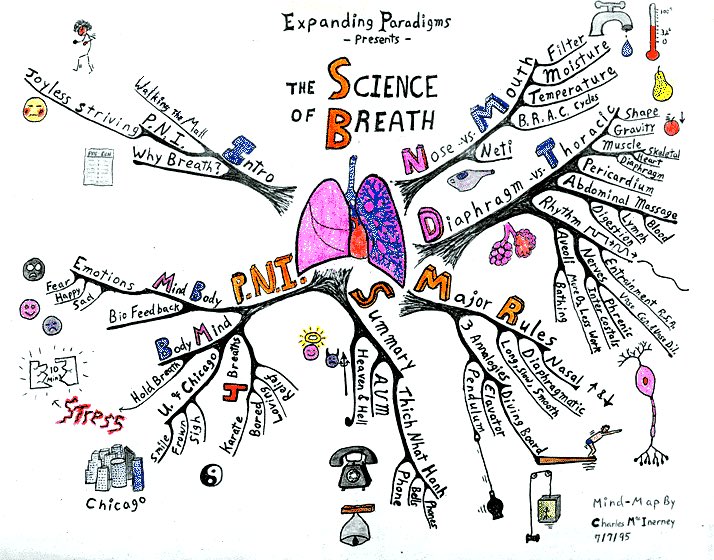 Expanding Paradigms
- Presents -
THE SCIENCE
OF BREATH
Intro
Walking the Mall
P.N.I.
Joyless Striving
Why Breath?
Nose -vs- Mouth
Filter
Moisture
Temperature
B.R.A.C. Cycles
Neti
100°
32°
0
Diaphragm -vs- Thoracic
Shape
Gravity
Muscle
Skeletal
Heart
Diaphragm
Pericardium
Abdominal Massage
Blood
Lymph
Digestion
Rhythm
Entrainment R.S.A.
Nerves
Phrenic
Intercostals
More O₂ Less Work
Alveoli
Bathing
Major Rules
Nasal
Diaphragmatic
Long, Slow, Smooth
3 Analogies
Diving Board
Elevator
Pendulum
Summary
Heaven & Hell
AVM
Thich Nhat Hanh
Phones
Bells
Phone
P.N.I.
Mind Body
Emotions
Fear
Happy
Sad
Bio Feedback
Body Mind
Hold Breath
10 MIN
Stress
U. of Chicago
Smile
Frown
Sigh
Chicago
4 Breaths
Karate
Bored
Loving
Relief
Mind-Map By
Charles McInerney
7/7/95